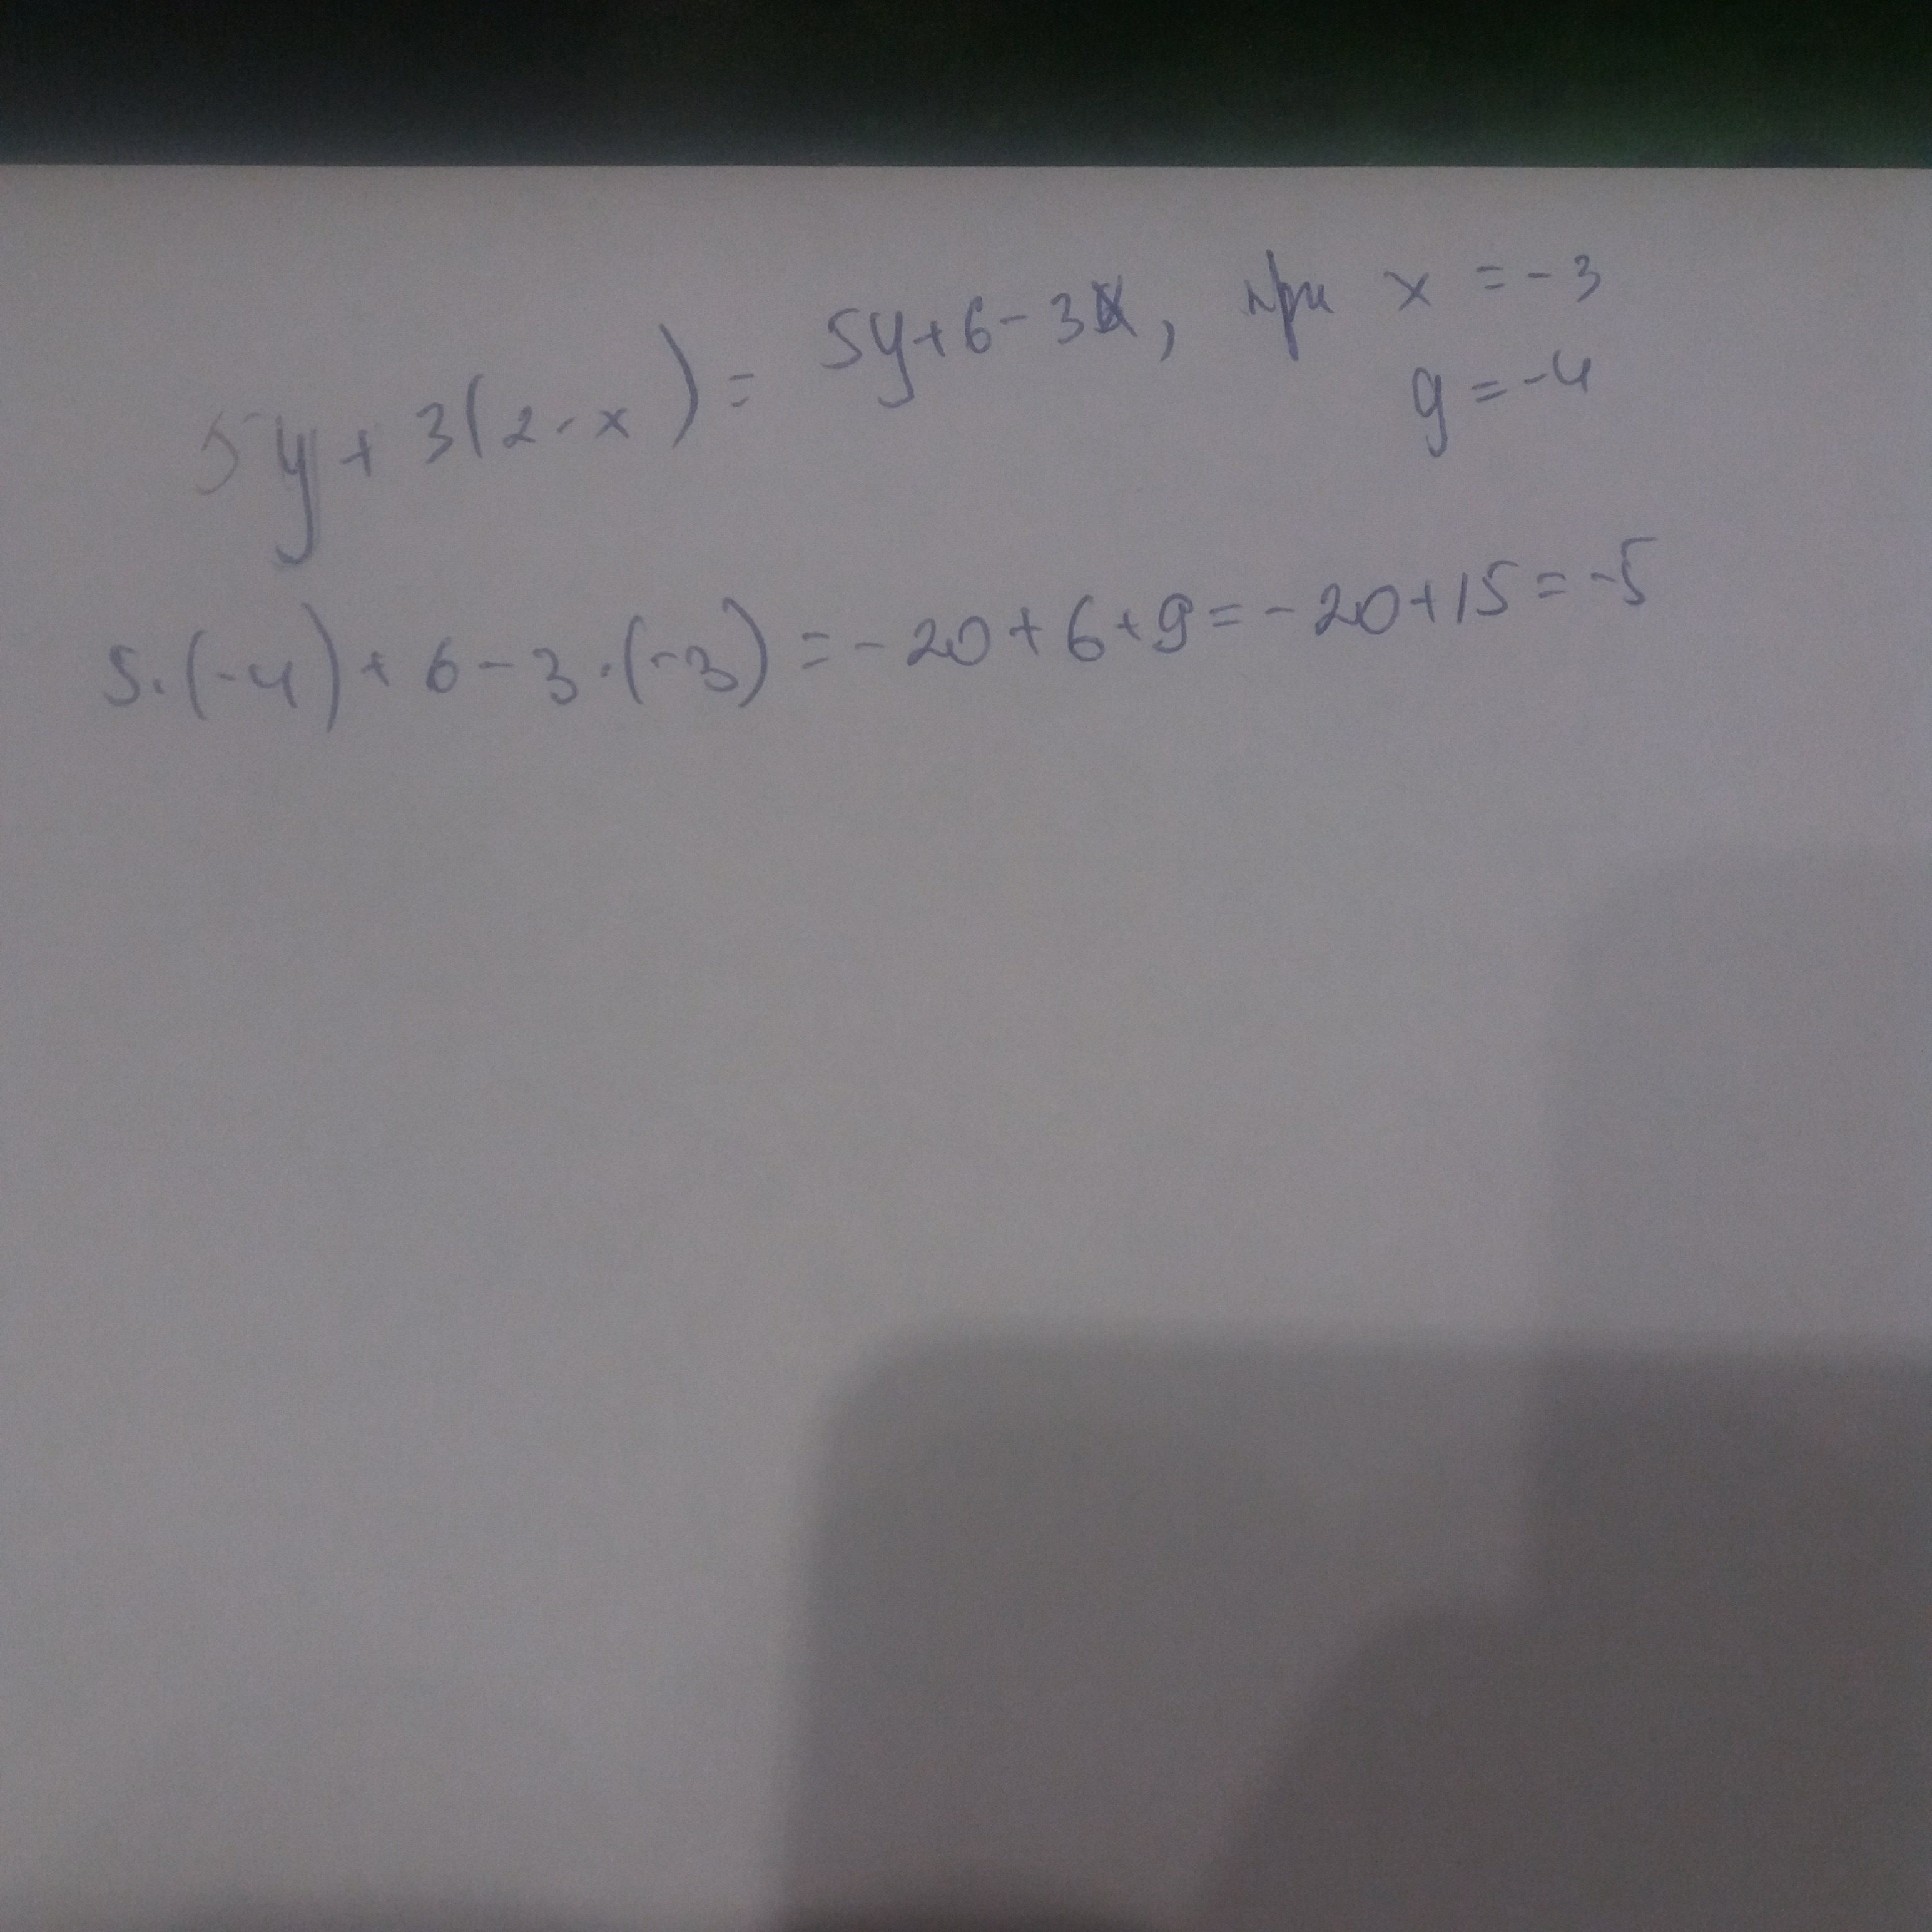 5y + 3(2 - x) = 5y + 6 - 3x, при x = -3
y = -4
5·(-4) + 6 - 3·(-3) = -20 + 6 + 9 = -20 + 15 = -5